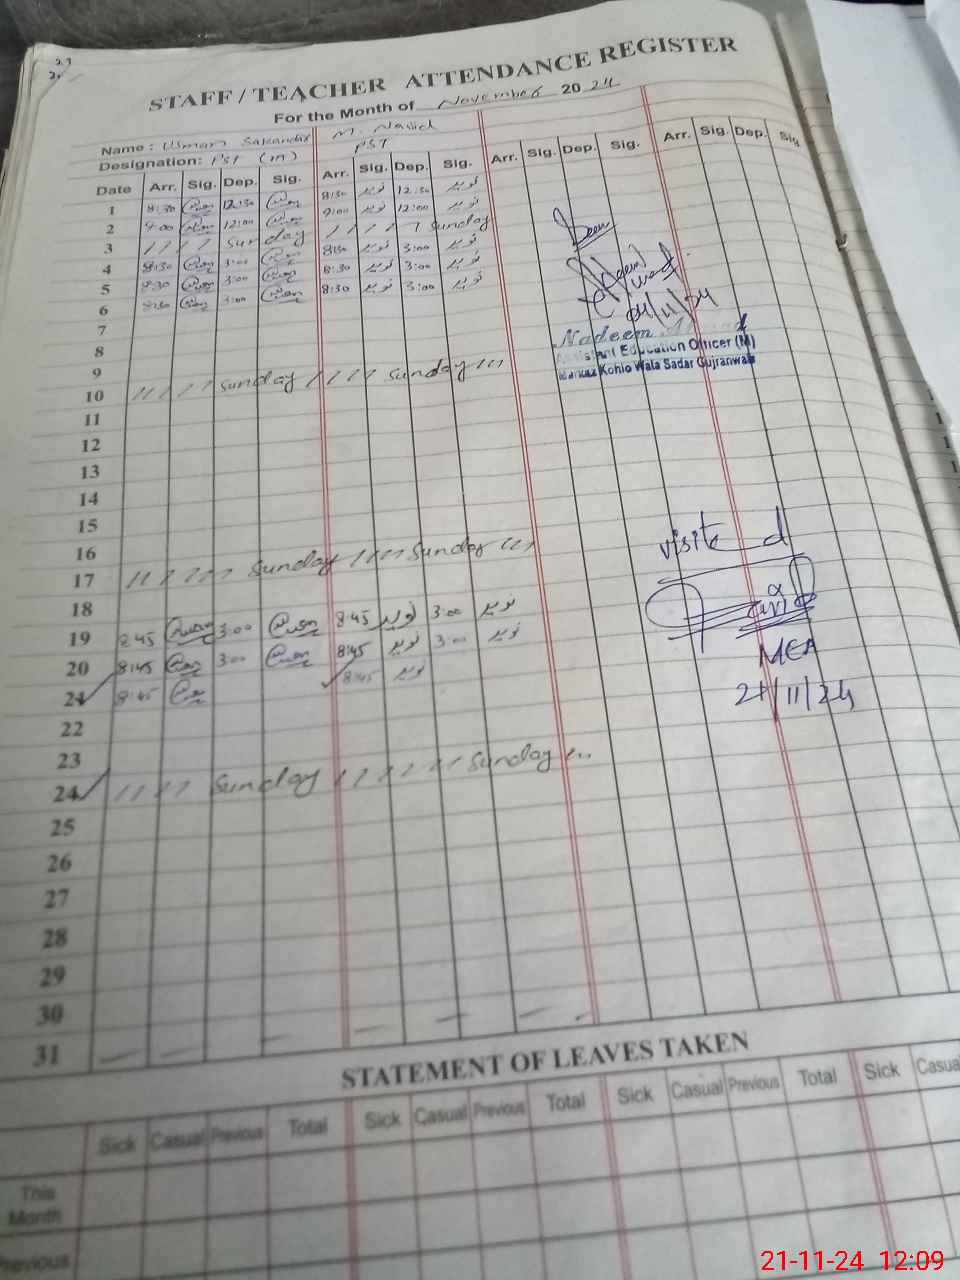 STAFF / TEACHER ATTENDANCE REGISTER
For the Month of November 2024
Name : Usman M. Navid
Designation: PST (m) PST
Date Arr. Sig. Dep. Sig. Arr. Sig. Dep. Sig. Arr. Sig. Dep. Sig. Arr. Sig. Dep. Sig
1 8:30 12:30 8:30 نوید 12:30 نوید
2 9:00 12:00 9:00 نوید 12:00 نوید
3 Sunday Sunday
4 8:30 3:00 8:30 نوید 3:00 نوید
5 8:30 3:00 8:30 نوید 3:00 نوید
6 8:30 3:00 8:30 نوید 3:00 نوید
7
04/11/24
8
Nadeem
Assistant Education Officer (M)
9
Markaz Kohlo Wala Sadar Gujranwala
10 Sunday Sunday
11
12
13
14
15
16
visited
17 Sunday Sunday
18
19 8:45 3:00 8:45 نوید 3:00 نوید
20 8:45 3:00 8:45 نوید 3:00 نوید
MEA
21 8:45 8:45 نوید
21/11/24
22
23
24 Sunday Sunday
25
26
27
28
29
30
31
STATEMENT OF LEAVES TAKEN
Sick Casual Previous Total Sick Casual Previous Total Sick Casual Previous Total Sick Casua
This
Month
Previous
21-11-24 12:09